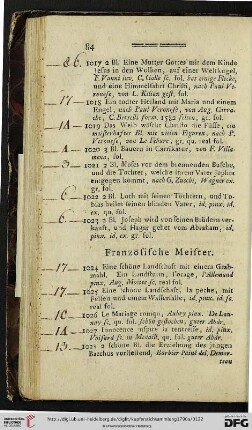 84
6. 1017 2 Bl. Eine Mutter Gottes mit dem Kinde
Jesus in den Wolken, auf einer Weltkugel,
F. Vanni inv, C. Galle sc. fol. hat einige Flecke,
und eine Himmelfahrt Christi, nach Paul Ve-
ronese, von L. Kilian gest. fol.
17 1018 Ein todter Heiland mit Maria und einem
Engel, nach Paul Veronese, von Aug. Carra-
che, C. Bertelli form. 1582 fol.
1019 Das Weib wäscht Christo die Füße, ein
meisterhaftes Bl. mit vielen Figuren, nach P.
Veronese, von Le Febure, gr. qu. roy. fol.
1020 3 Bl. Bauern in Carrikatur, von F. Villa-
mena, fol.
1021 2 Bl. Moses vor dem brennenden Busche,
und die Töchter, welche ihrem Vater Jephta
entgegen kommt, nach G. Zocchi, Wagner ex.
gr. fol.
6 1022 2 Bl. Loth mit seinen Töchtern, und To-
bias heilet seinen blinden Vater, id. pinx. id.
ex. qu. fol.
6 1023 2 Bl. Joseph wird von seinen Brüdern ver-
kauft, und Hagar gehet vom Abraham, id.
pinx. id. ex. gr. fol.
Französische Meister.
17 1024 Eine schöne Landschaft mit einem Grab-
mahl. Ein Landsturm, l'orage, l'Allemand
pinx. Aug. sc. roy. fol.
17 1025 Eine schöne Landschaft, la peche, mit
Felsen und einem Wasserfalle, id. pinx. id. sc.
real fol.
10 1026 Le Mariage conçu, Aubry pinx. De Lau-
nay sc. qu. fol. schön gestochen, guter Abdr.
14 1027 Innocence inspire la tentresse, id. pinx.
Voisard sc. in Medaill. qu. fol. guter Abdr.
13 1028 2 schöne Bl. die Erziehung des jungen
Bacchus vorstellend, Barbier Painé del. Demon-
http://digi.ub.uni-heidelberg.de/diglit/kaufendesammlung1790a/0122